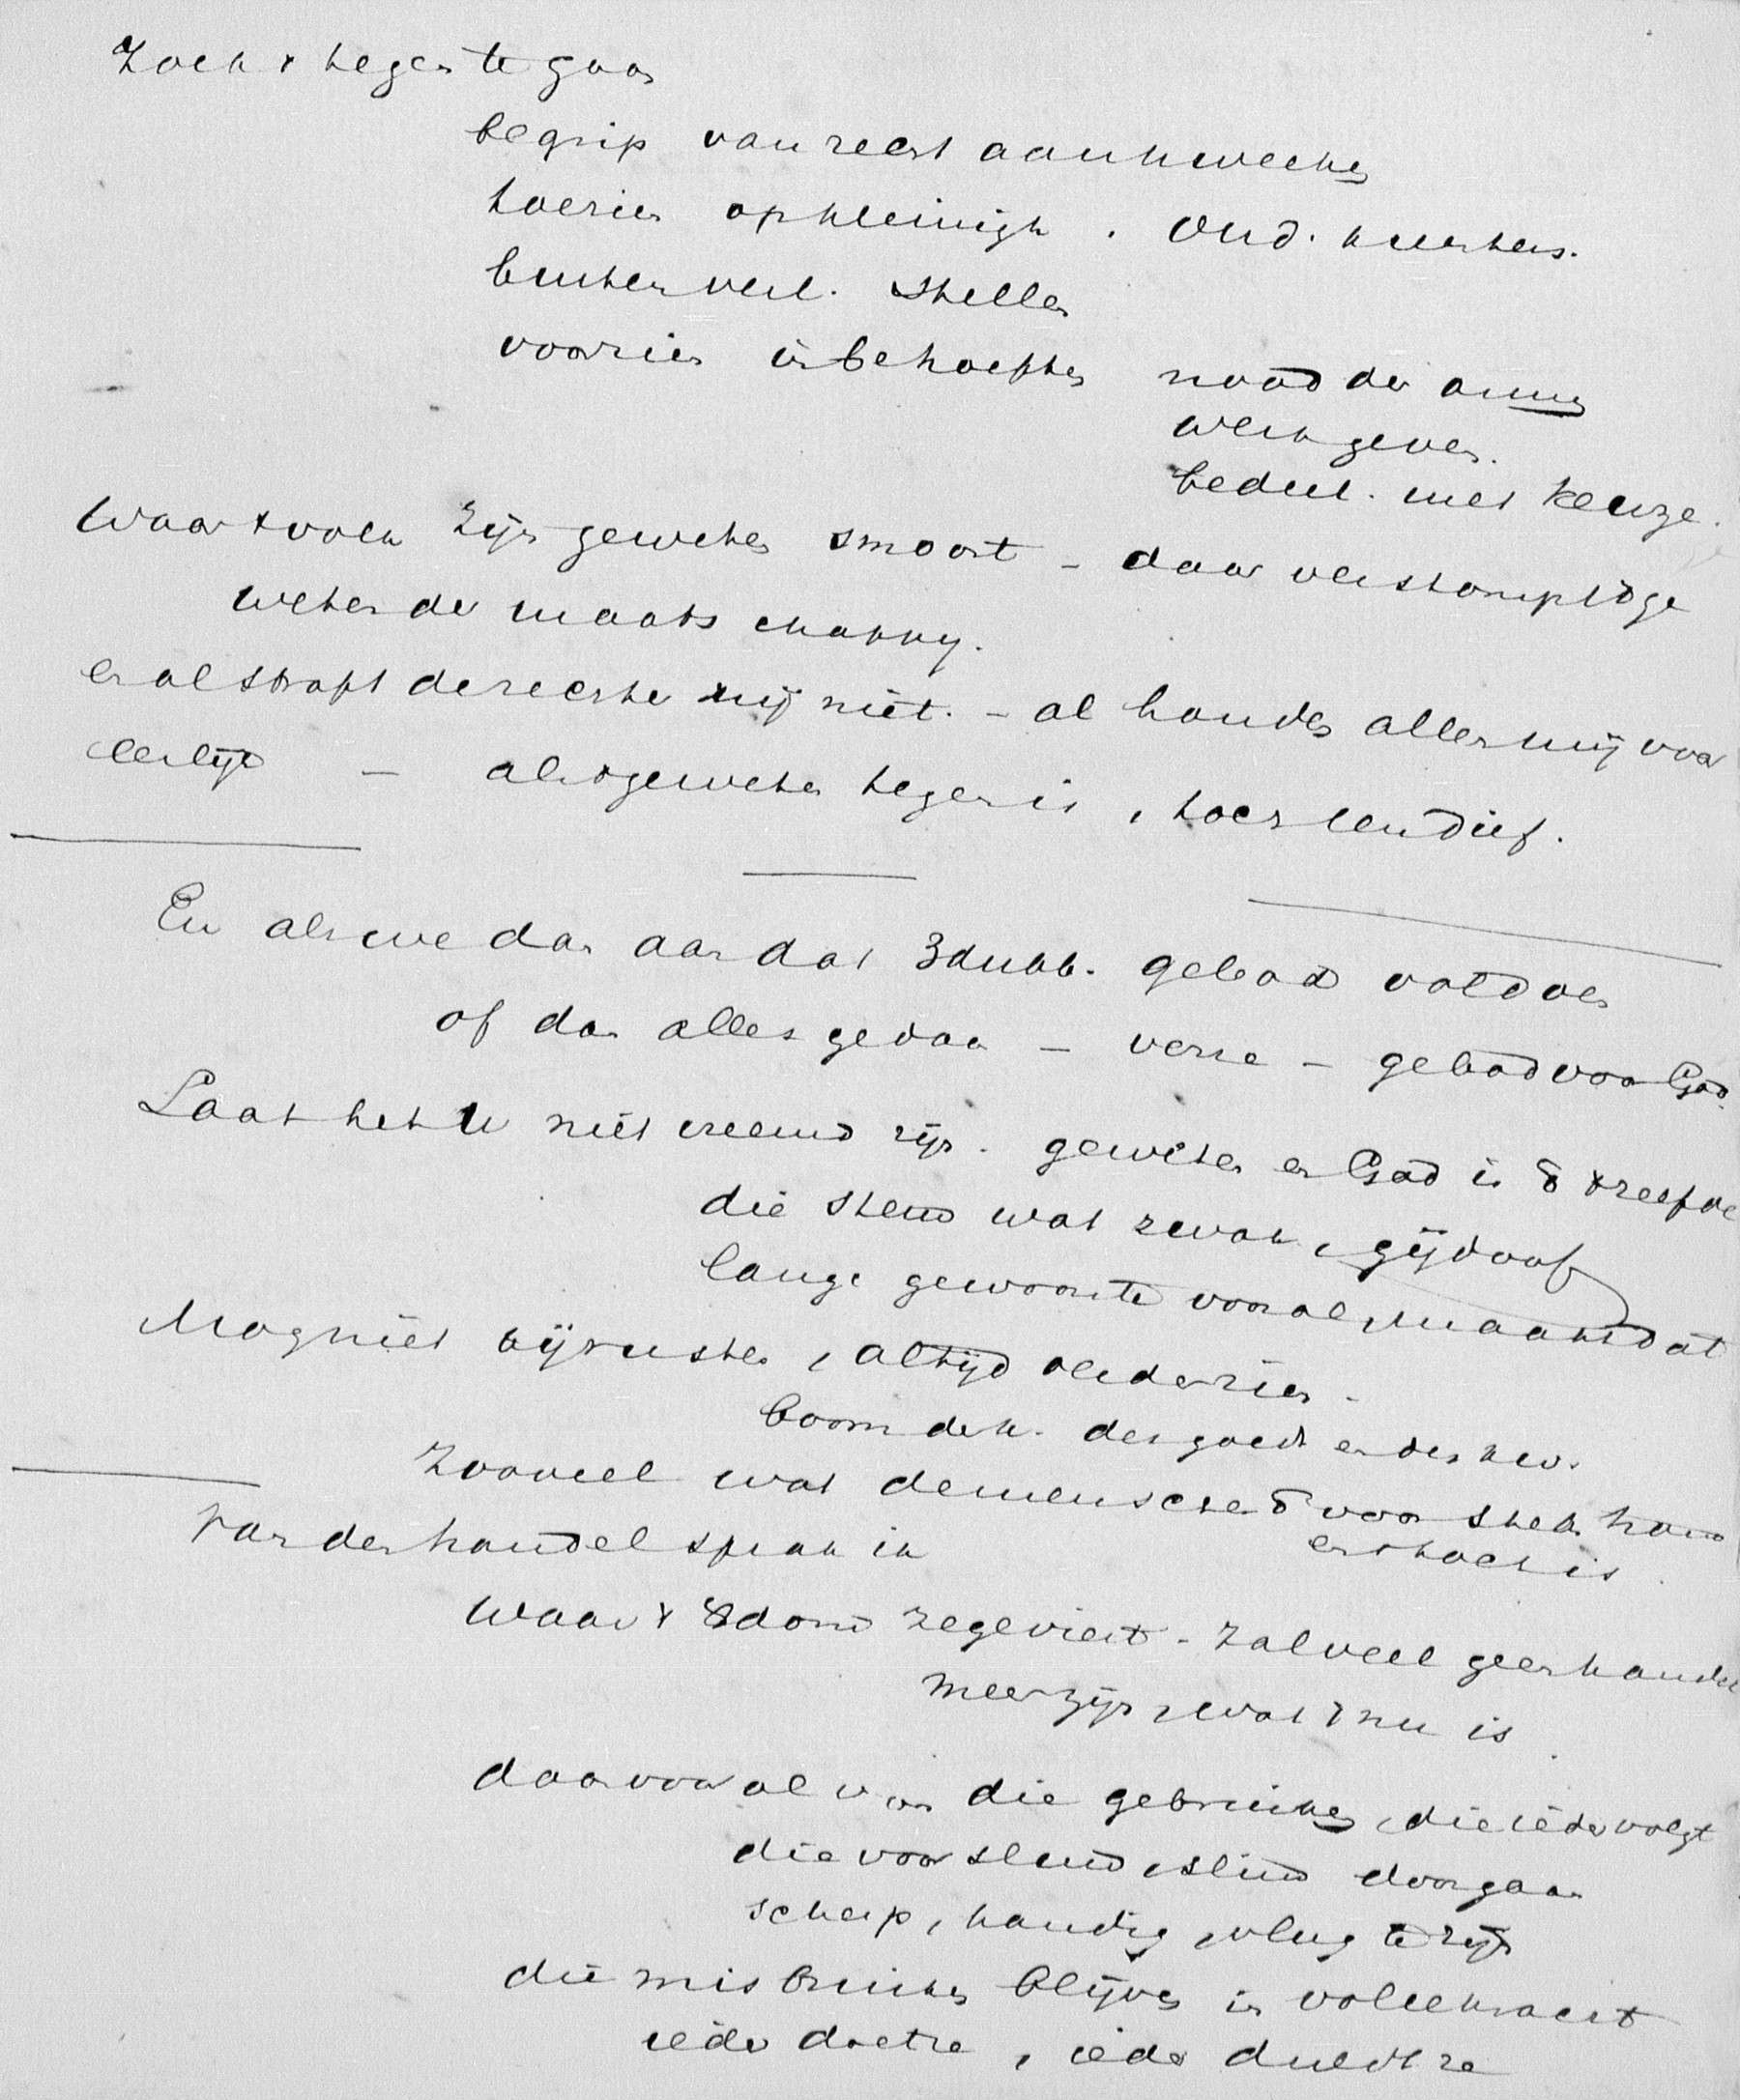 Zoek x tegen te gaan
begrip van recht aankweeken
toezien op kleinigh. Ond. kwekers.
buiten verl. stellen
voorzien in behoeften nood der armen
werk geven.
bedeel. met keuze.
Waar x volk zijn geweten smoort - daar verstompt ð ge
weten der maatschappij.
en al straft de rechter mij niet. - al houden allen mij voor
eerlijk - als x geweten tegen is, toch een dief.
En als we dan aan dat 3dubb. gebod voldoen
of dan alles gedaan - verre - gebod voor God.
Laat het U niet vreemd zijn. geweten en God is ð x zelfde
die stem wat zwak, gij doof
lange gewoonte vooral, maakt dat
Mag niet bij rusten, altijd verder zien -
boom der k. des goeds en des kw.
Zooveel wat de menschen ð voor slecht houden
en slecht is
Van den handel sprak ik
Waar x Xdom zegeviert - zal veel geen handel
meer zijn, wat x nu is
daar vooral van die gebruiken, die ieder volgt
die voor slim doorgaan
scherp, handig, vlug te zijn
die misbruiken blijven in volle kracht
ieder doet ze, ieder duldt ze